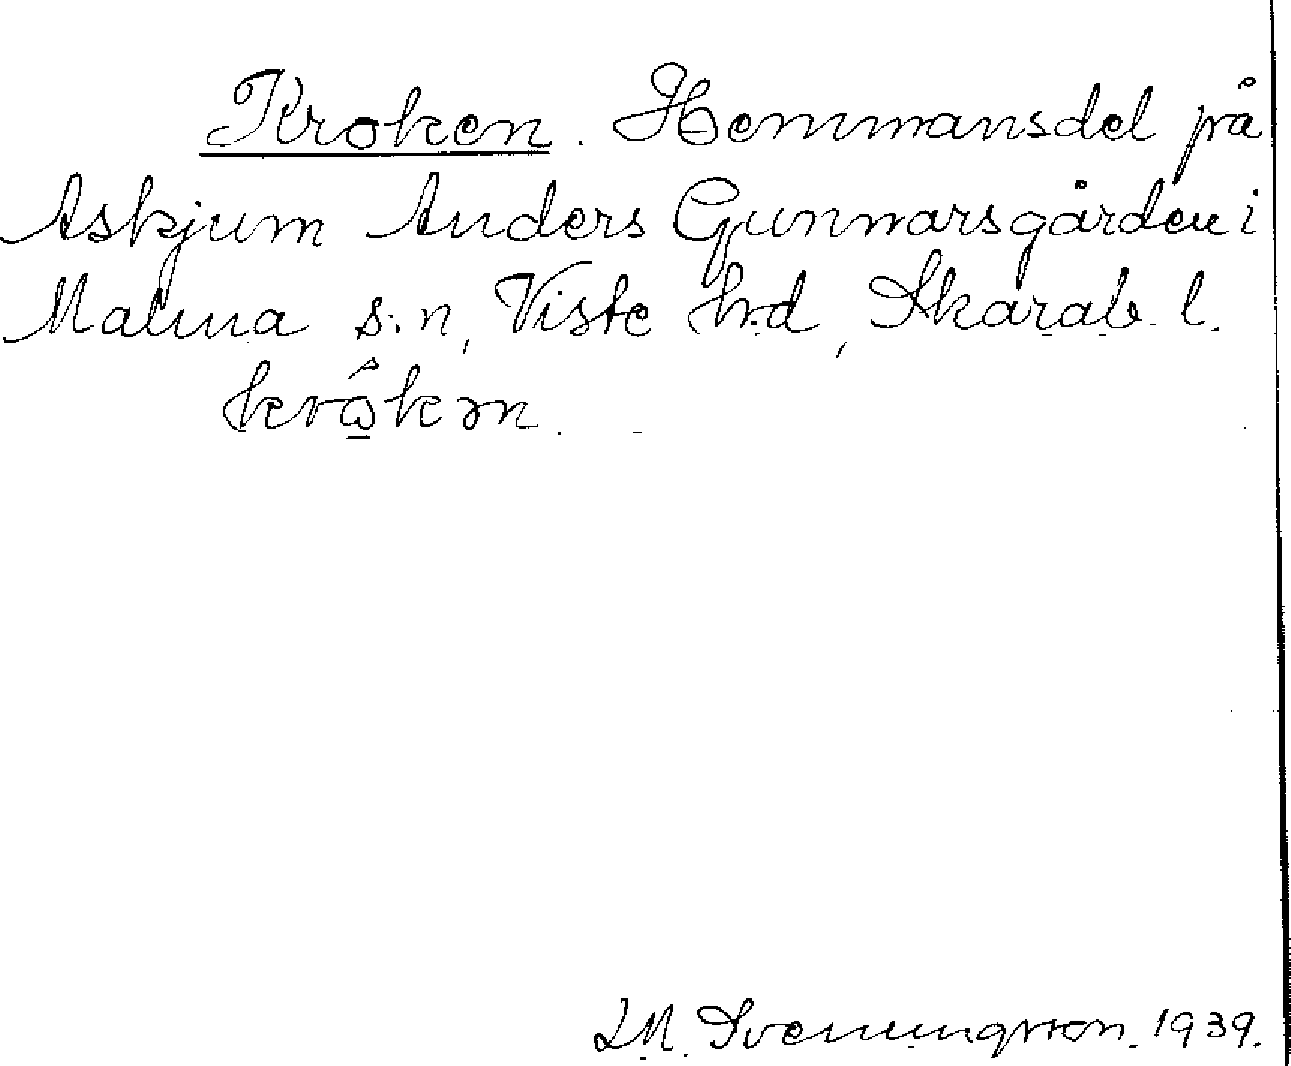 Kroken. Hemmansdel på
Askjum Anders Gunnarsgården i
Malma s:n, Viste h:d, Skarab. l.
krǫ̂kən.
J.M. Svenungsson. 1939.